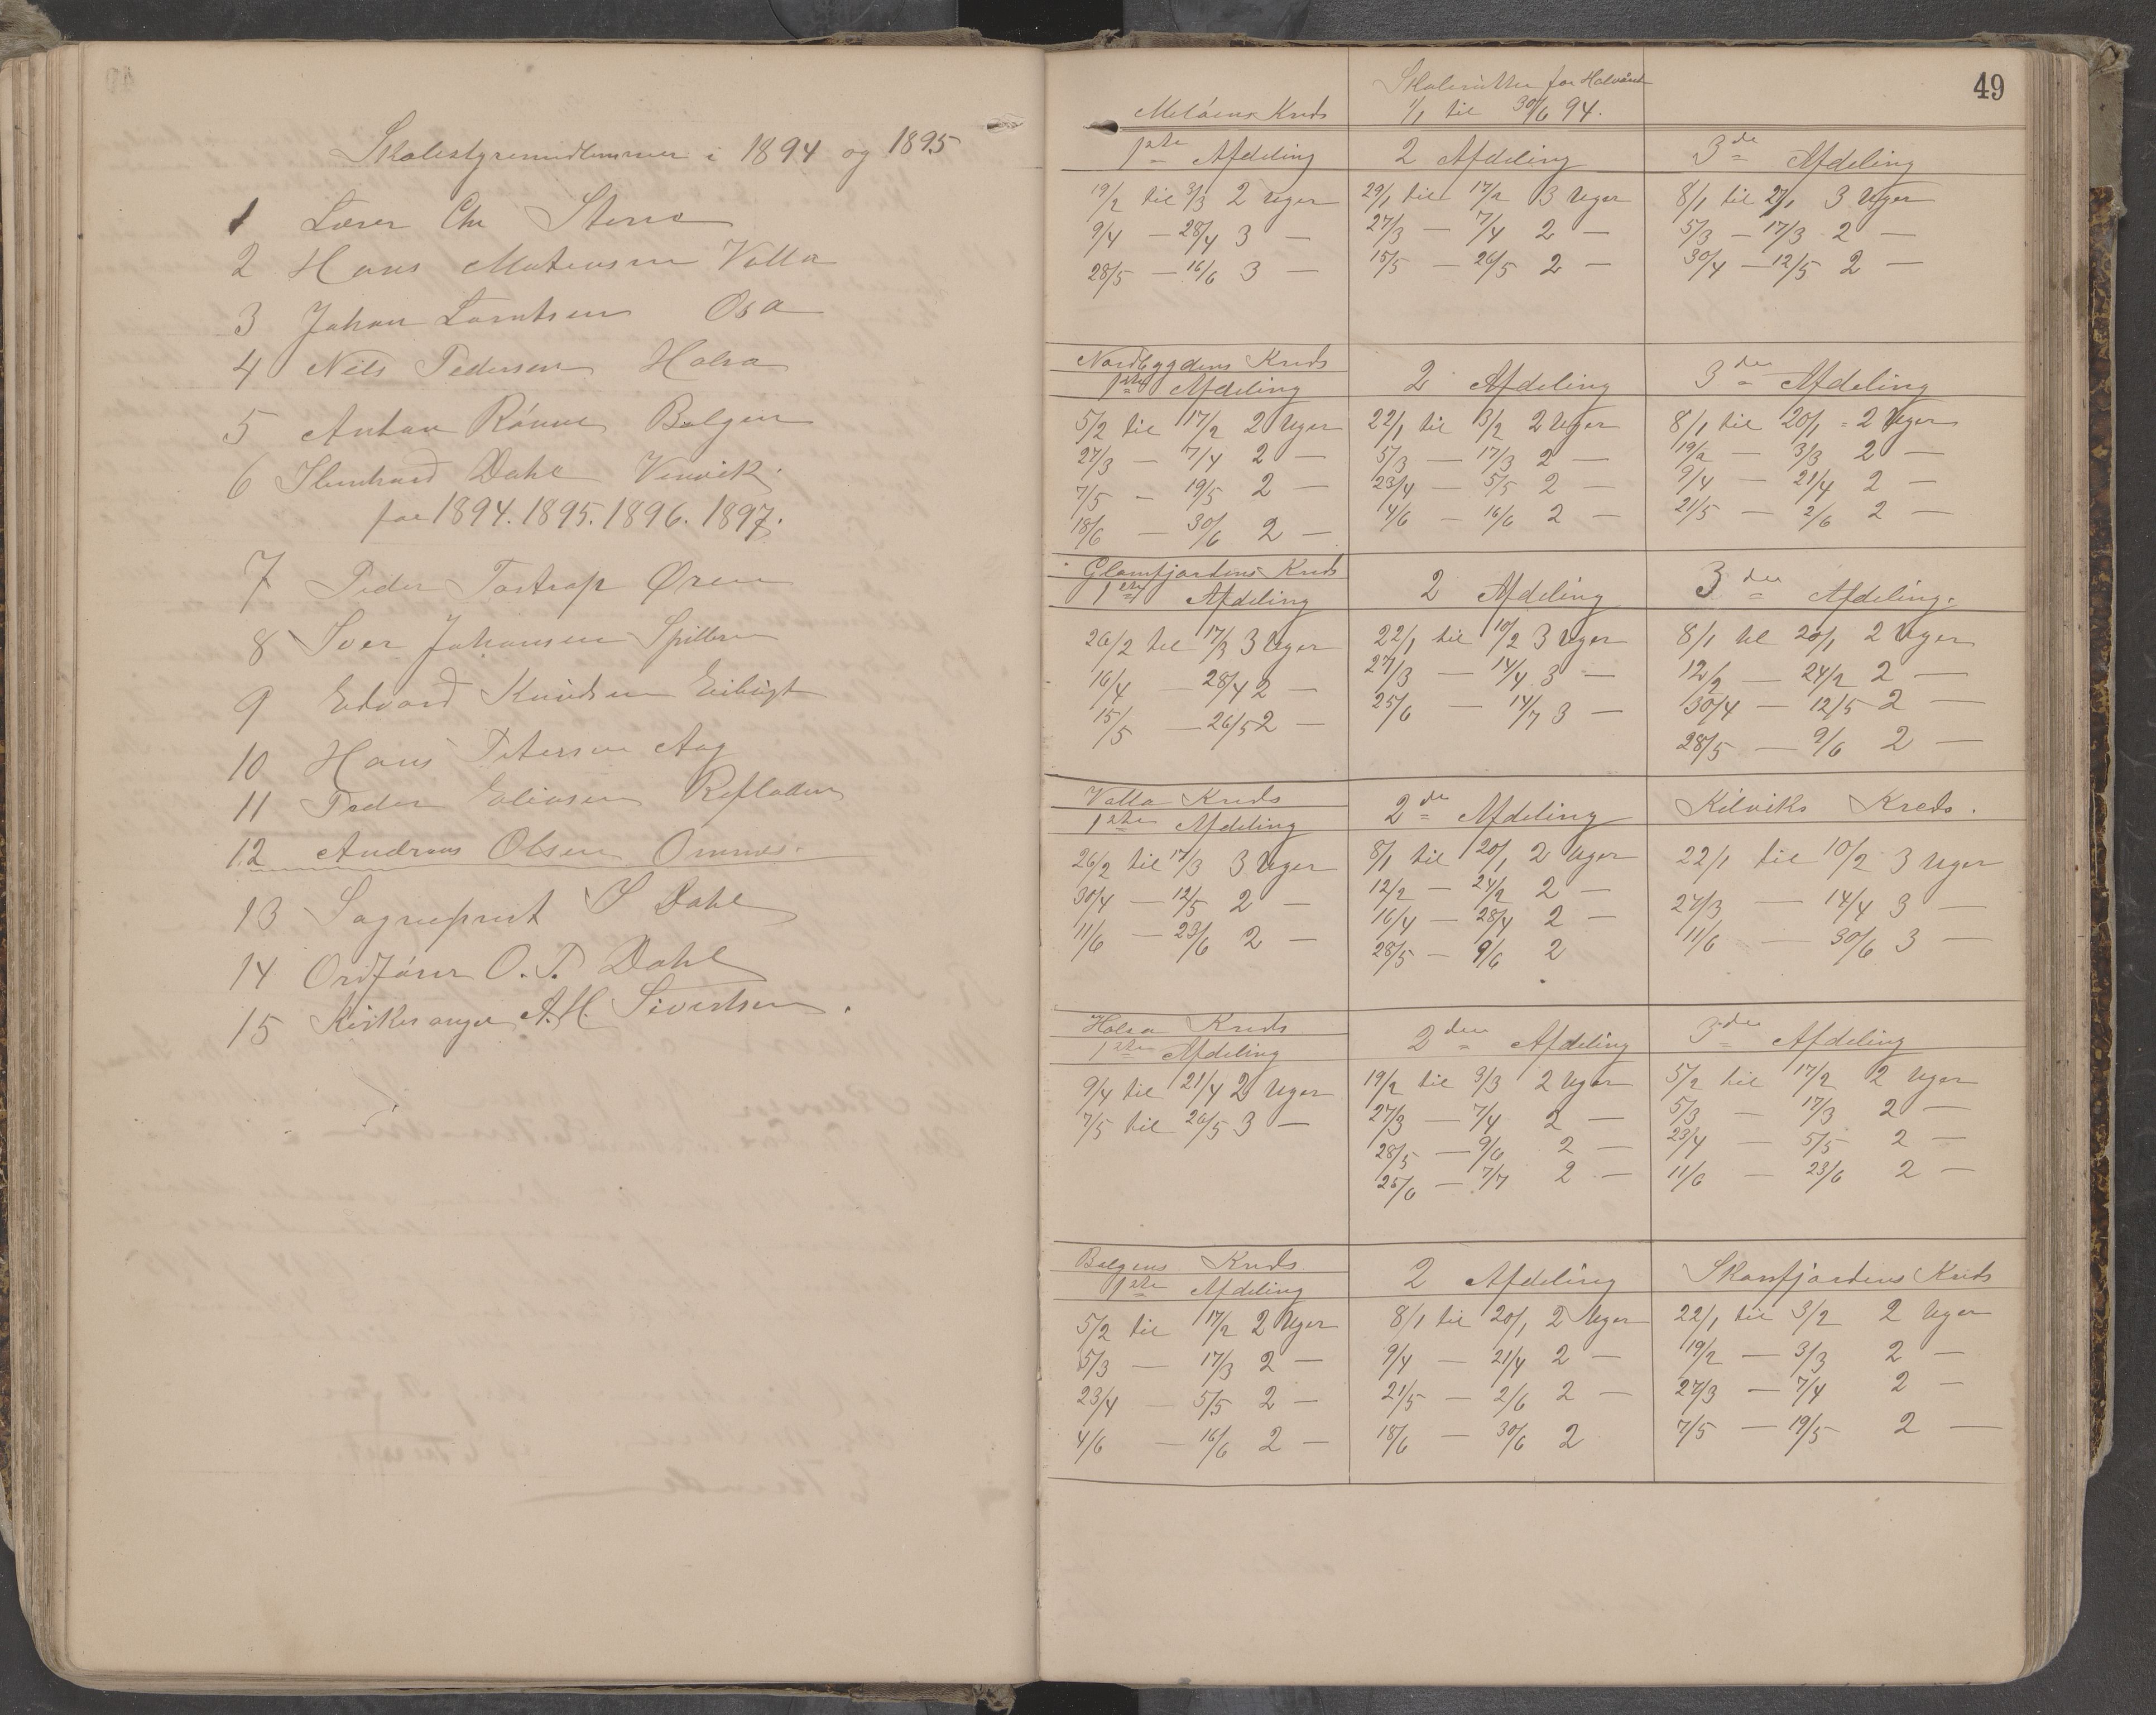 Skolestyremedlemmer i 1894 og 1895
1 Lærer Chr Steno
2 Hans Mateussen Valla
3 Johan Lorntsen Osa
4 Nils Pedersen Halsa
5 Anton Rønne Bolgen
6 Dahl Venvik.
for 1894. 1895. 1896. 1897.
7 Peder Tostrup Øren
8 Iver Johansen Spilderen
9 Edvard Knudsen
10 Hans Petersen Aag
11 Peder Eliasen
12 Andreas Olsen Ommes.
13 Sogneprest Dahl
14 Ordfører O. P. Dahl
15 Kirkesanger A. H. Sivertsen.
49
Skoleruther for Halvåret
Meløens Kreds 1/1 til 30/6 94.
1ste Afdeling 2 Afdeling 3de Afdeling
19/2 til 3/3 2 Uger 29/1 til 17/2 3 Uger 8/1 til 27/1 3 Uger
9/4 — 28/4 3 — 27/3 — 7/4 2 — 5/3 — 17/3 2 —
28/5 — 16/6 3 — 15/5 — 26/5 2 — 30/4 — 12/5 2 —
Nordbygdens Kreds
1ste Afdeling 2 Afdeling 3de Afdeling
5/2 til 17/2 2 Uger 22/1 til 3/2 2 Uger 8/1 til 20/1 - 2 Uger
27/3 — 7/4 2 — 5/3 — 17/3 2 — 19/2 — 3/3 2 —
7/5 — 19/5 2 — 23/4 — 5/5 2 — 9/4 — 21/4 2 —
18/6 — 30/6 2 — 4/6 — 16/6 2 — 21/5 — 2/6 2 —
Glomfjordens Kreds
1ste Afdeling 2 Afdeling 3de Afdeling.
26/2 til 17/3 3 Uger 22/1 til 10/2 3 Uger 8/1 til 20/1 2 Uger
16/4 — 28/4 2 — 27/3 — 14/4 3 — 12/2 — 24/2 2 —
15/5 — 26/5 2 — 25/6 — 14/7 3 — 30/4 — 12/5 2 —
28/5 — 9/6 2 —
Valla Kreds
1ste Afdeling 2de Afdeling Kilviks Kreds.
26/2 til 17/3 3 Uger 8/1 til 20/1 2 Uger 22/1 til 10/2 3 Uger
30/4 — 12/5 2 — 12/2 — 24/2 2 — 27/3 — 14/4 3 —
11/6 — 23/6 2 — 16/4 — 28/4 2 — 11/6 — 30/6 3 —
28/5 — 9/6 2
Halsa Kreds
1ste Afdeling 2den Afdeling 3de Afdeling
9/4 til 21/4 2 Uger 19/2 til 3/3 2 Uger 5/2 til 17/2 2 Uger
7/5 til 26/5 3 — 27/3 — 7/4 2 — 5/3 — 17/3 2 —
28/5 — 9/6 2 — 23/4 — 5/5 2 —
25/6 — 7/7 2 — 11/6 — 23/6 2 —
Bolgens Kreds
1ste Afdeling 2 Afdeling Skarsfjordens Kreds
5/2 til 17/2 2 Uger 8/1 til 20/1 2 Uger 22/1 til 3/2 2 Uger
5/3 — 17/3 2 — 9/4 — 21/4 2 — 19/2 — 3/3 2 —
23/4 — 5/5 2 — 21/5 — 2/6 2 — 27/3 — 7/4 2 —
4/6 — 16/6 2 — 18/6 — 30/6 2 7/5 — 19/5 2 —